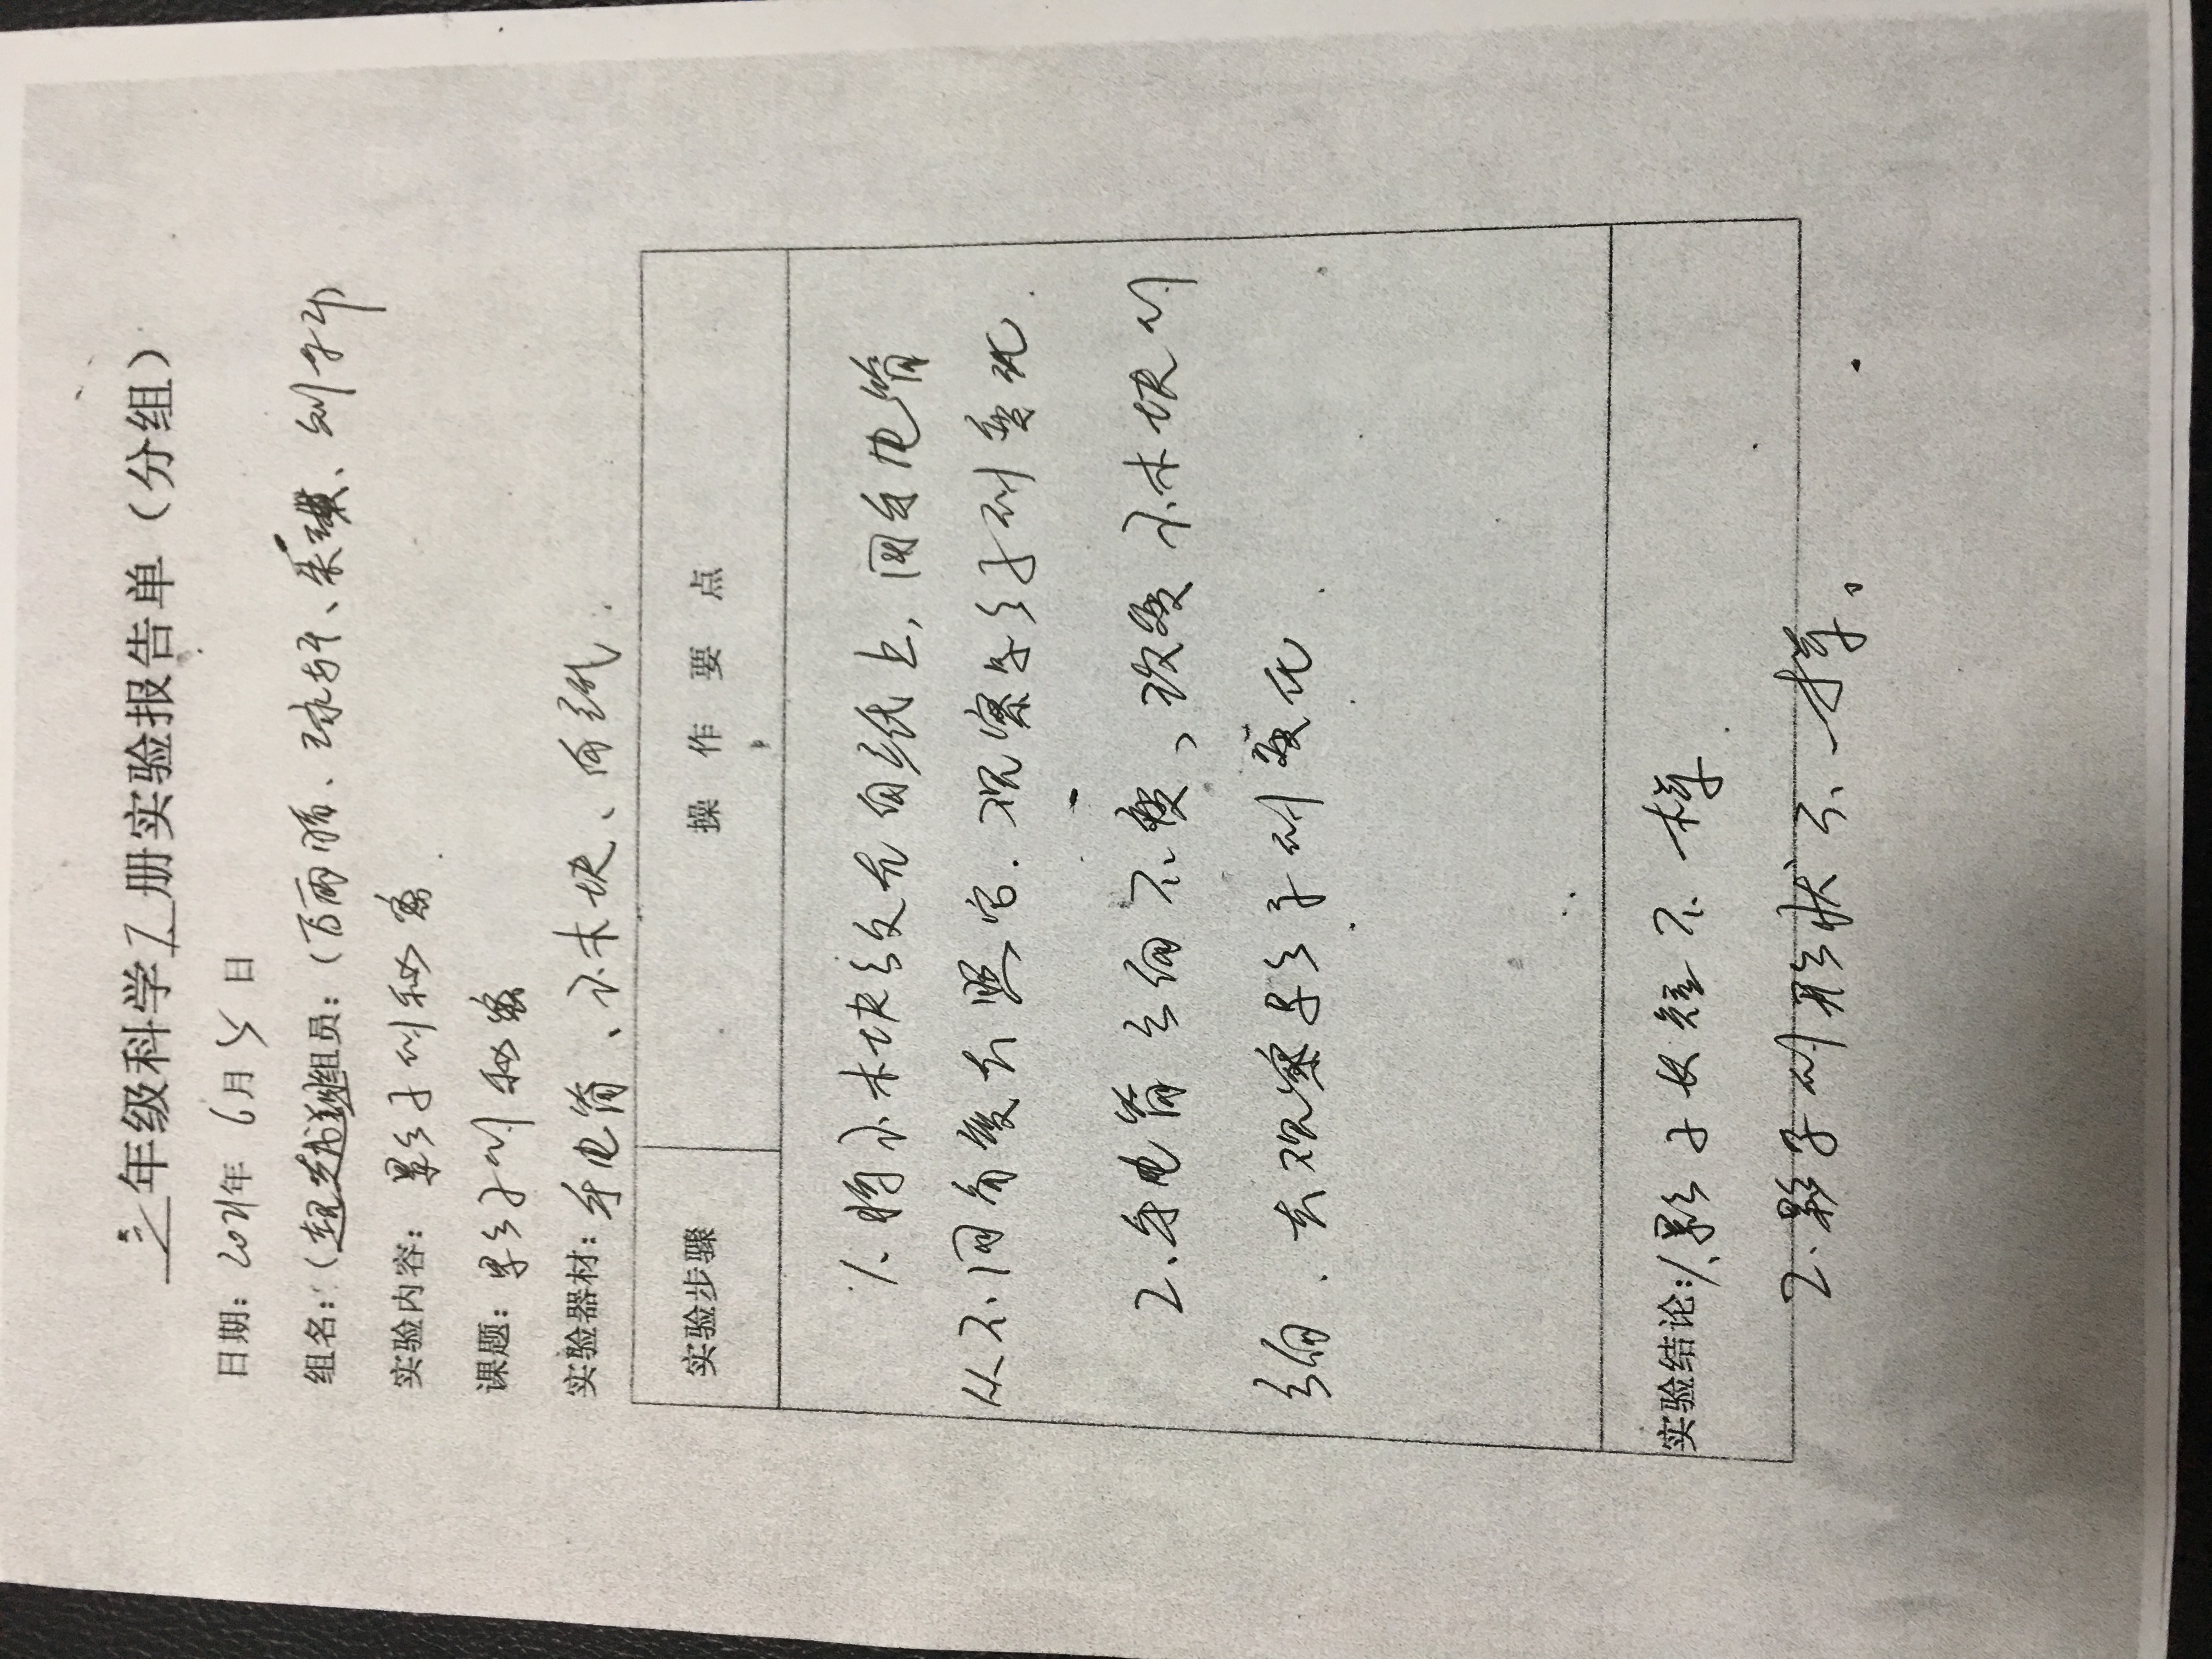 三年级科学下册实验报告单（分组）
日期：2021年 6月 5 日
组名：（超越组员：（
实验内容：影子的秘密
课题：影子的秘密
实验器材：手电筒、小木块、白纸.
实验步骤 操作要点
1、将小木块放在白纸上，用手电筒
从不同角度去照它.观察影子的变化.
2.手电筒位置不变、改变小木块的
位置.去观察影子的变化.
实验结论：1、影子长短不一样.
2.影子的形状不一样。